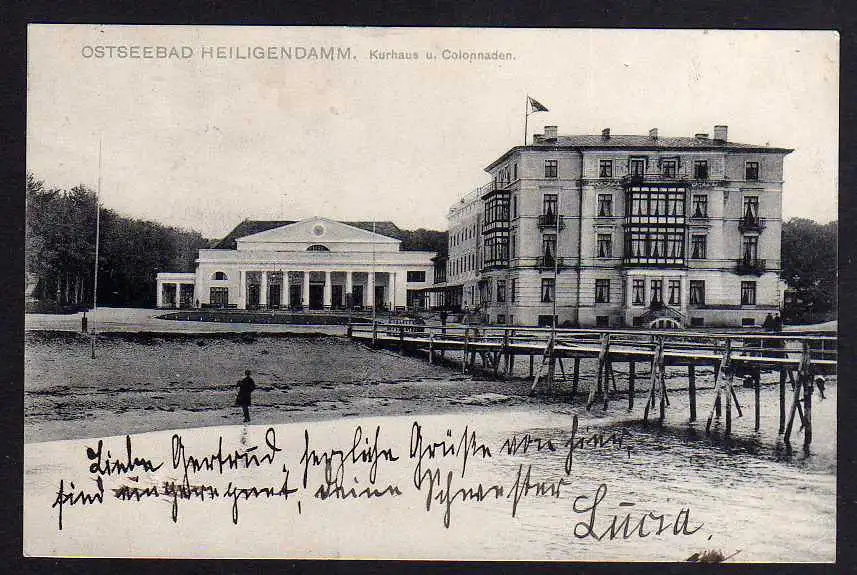 OSTSEEBAD HEILIGENDAMM. Kurhaus u. Colonnaden.
Liebe Gertrud, herzliche Grüße von hier,
sind eingeregnet, deine Schwester
Lucia.